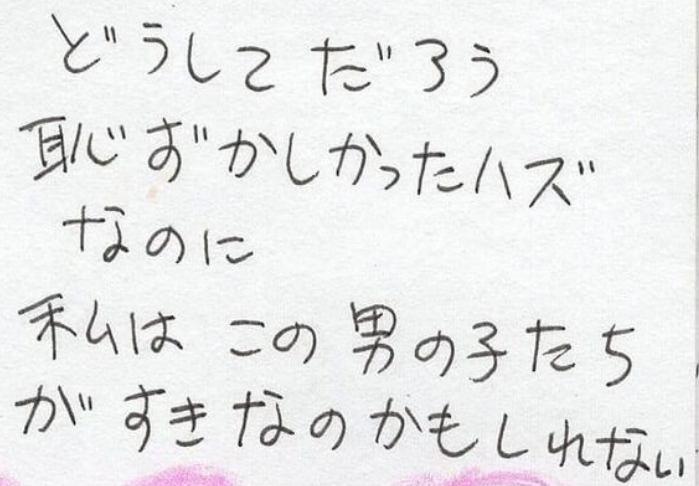 どうしてだろう
恥ずかしかったハズ
なのに
私は この 男の子たち
がすきなのかもしれない